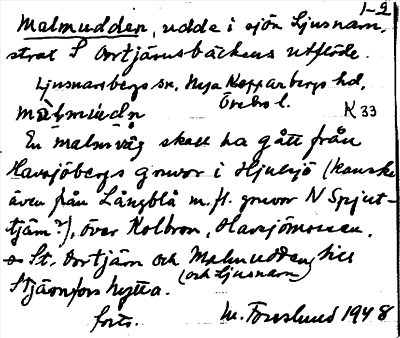 1-2
Malmudden, udde i sjön Ljusnam,
strax S Dortjärnsbäckens utflöde.
Ljusnarsbergs sn, Nya Kopparbergs hd,
Örebro l.
màlmùdn K 33
En malmväg skall ha gått från
Havsjöbergs gruvor i Hjulsjö (kanske
även från Långblå m.fl. gruvor N Spjut-
tjärn?), över Kolbron, Havsjömossen,
St. Dortjärn och Malmudden till
(och Ljusnam)
Stjärnfors hytta.
forts. M. Forslund 1948